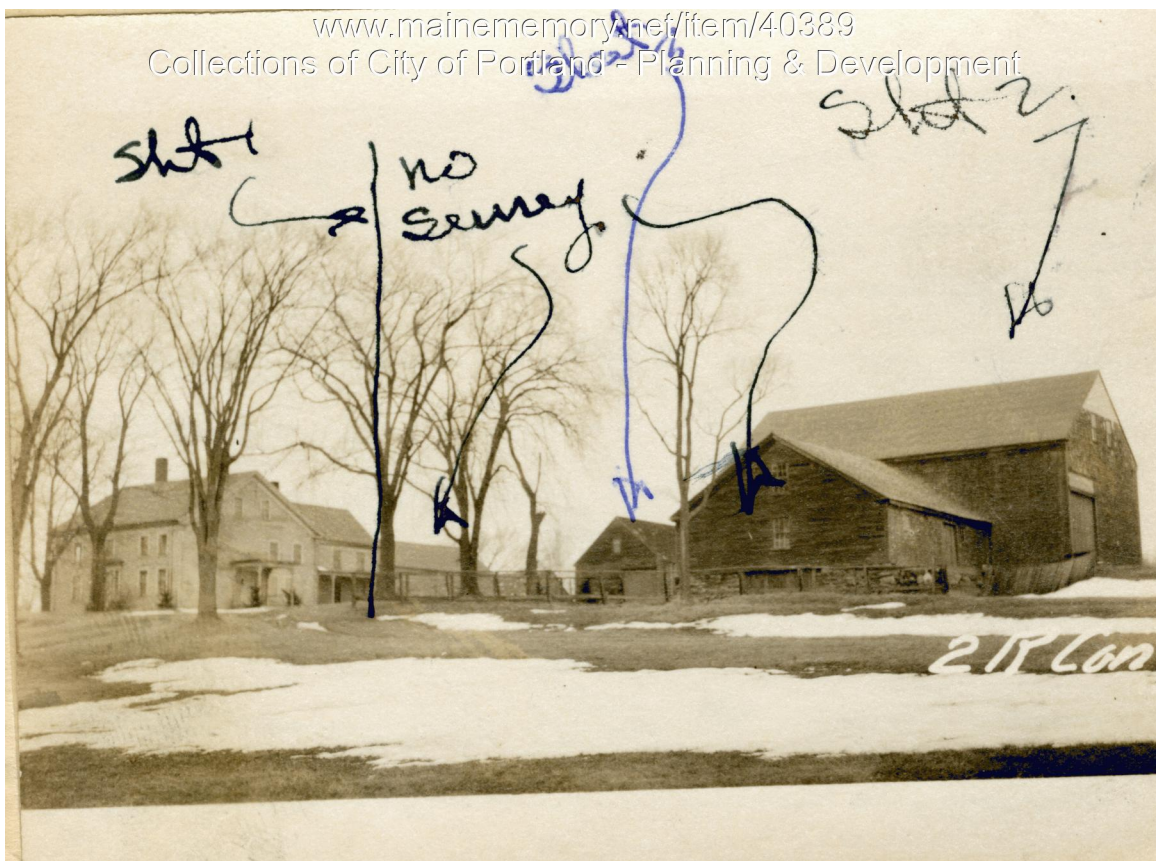 www.mainememory.net/item/40389
Collections of City of Portland - Planning & Development
Sht 1
no
Sht 2
2 R Con